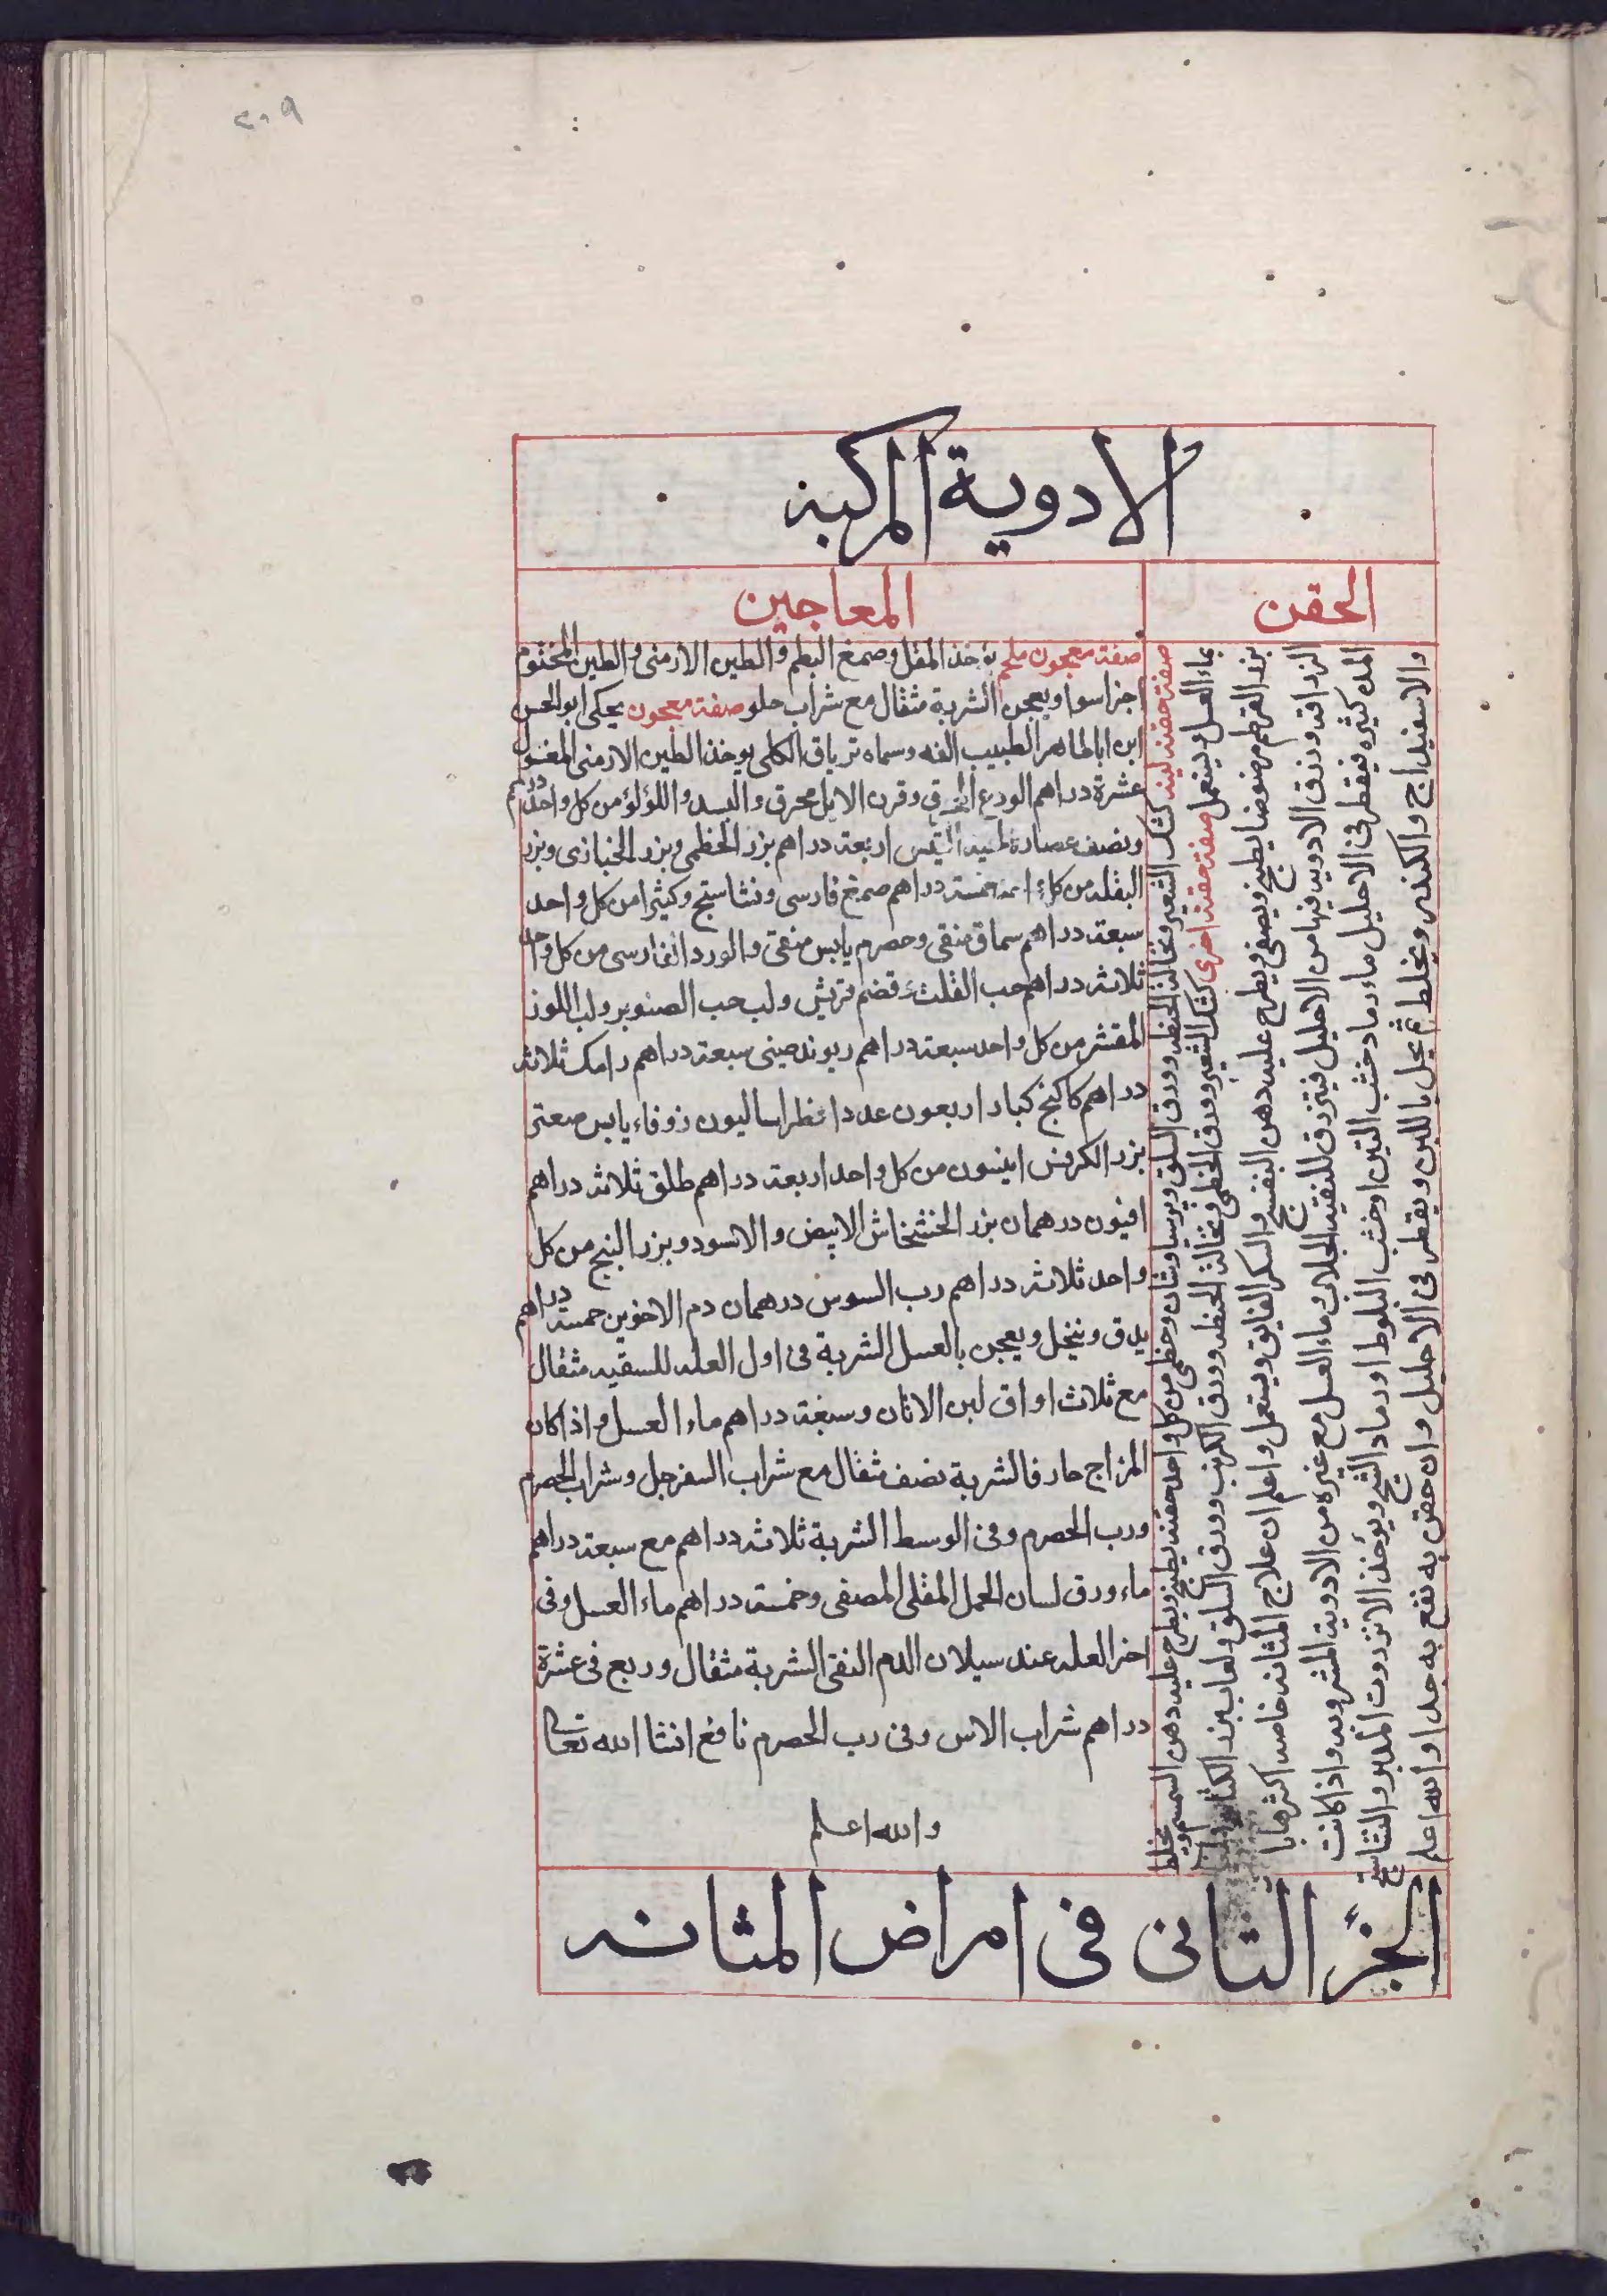 ٢٠٩
الادوية المركبة
الحقن
المعاجين
صفة حقنة لينة كشك الشعير ونخالة الحنطة وورق السلق وبرسياوشان وخطمى من كل واحد حفنة يطبخ ويطرح عليه دهن السمسم ويخلط
بماء العسل ويستعمل صفة حقنة اخرى كشك الشعير وورق الخطمى ونخالة الحنطة وورق الكرنب وورق السلق ولعاب بزر الكتان
بزر القرطم مرضوضا يطبخ ويصفى ويطرح عليه دهن البنفسج والسكر الفايق ويستعمل واعلم ان علاج المثانه خاصه اكثرها با
الزراقه وزرق الادويه فيها من الاحليل فيتزرق للنقيه الجلاب وماء العسل مع غيره من الادوية المشروبه واذا كانت
المدة كثيره فيقطر فى الاحليل ماء رماد خشب التين او خشب البلوط او رماد الشيح ويؤخذ الانزروت المدبر والنشاستج
والاسفيداج والكندر ويخلط ثم يحل باللبن ويقطر فى الاحليل وان حقن به نفع به جدا والله اعلم
صفة معجون ملحم يؤخذ المقل وصمغ البطم والطين الارمنى والطين المختوم
اجزا سوا ويعجن الشربة مثقال مع شراب حلو صفة معجون يحكى ابو الحسن
ابن اباطاهر الطبيب الفه وسماه ترياق الكلى يوخذ الطين الارمنى المغسول
عشرة دراهم الودع المحرق وقرن الايل محرق والبسد واللؤلؤ من كل واحد درهم
ونصف عصارة لحية التيس اربعة دراهم بزر الخطمى وبزر الخبازى وبزر
البقله من كل خمسة دراهم صمغ فارسى ونشاستج وكثيرا من كل واحد
سبعة دراهم سماق منقى وحصرم يابس منقى والورد الفارسى من كل واحد
ثلاثة دراهم حب القلت قضم قريش ولب حب الصنوبر ولب اللوز
المقشر من كل واحد سبعة دراهم ريوند صينى سبعة دراهم رامك ثلاثة
دراهم كاكنج كبار اربعون عددا فطراساليون زوفاء يابس صعتر
بزر الكرفس انيسون من كل واحد اربعة دراهم طلق ثلاثة دراهم
افيون درهمان بزر الخشخاش الابيض والاسود وبزر البنج من كل
واحد ثلاثة دراهم رب السوس درهمان دم الاخوين خمسة دراهم
يدق وينخل ويعجن بالعسل الشربة فى اول العله للسقيه مثقال
مع ثلاث اواق لبن الاتان وسبعة دراهم ماء العسل واذا كان
المزاج حار فالشربة نصف مثقال مع شراب السفرجل وشراب الحصرم
ورب الحصرم وفى الوسط الشربة ثلاثة دراهم مع سبعة دراهم
ماء ورق لسان الحمل المقلى المصفى وخمسة دراهم ماء العسل وفى
اخر العله عند سيلان الدم النقى الشربة مثقال وربع فى عشرة
دراهم شراب الاس وفى رب الحصرم نافع انشا الله تعالى
والله اعلم
الجزء الثانى فى امراض المثانه